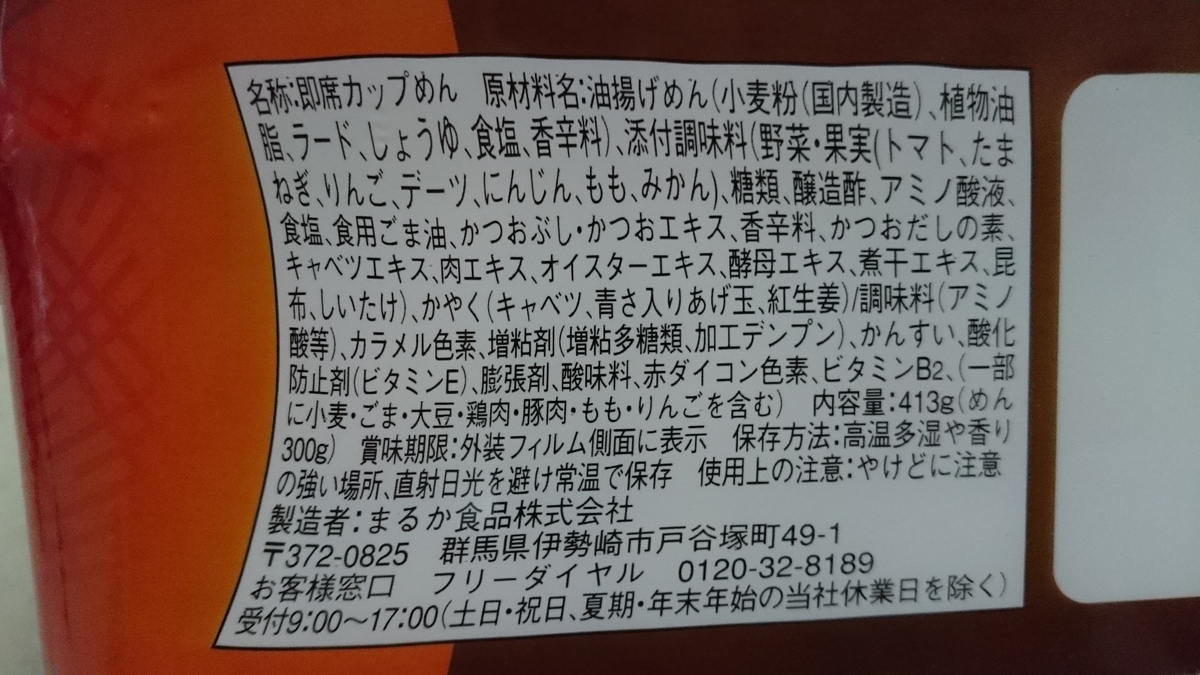 名称:即席カップめん 原材料名:油揚げめん(小麦粉(国内製造)、植物油
脂、ラード、しょうゆ、食塩、香辛料)、添付調味料(野菜・果実(トマト、たま
ねぎ、りんご、デーツ、にんじん、もも、みかん)、糖類、醸造酢、アミノ酸液、
食塩、食用ごま油、かつおぶし・かつおエキス、香辛料、かつおだしの素、
キャベツエキス、肉エキス、オイスターエキス、酵母エキス、煮干エキス、昆
布、しいたけ)、かやく(キャベツ、青さ入りあげ玉、紅生姜)/調味料(アミノ
酸等)、カラメル色素、増粘剤(増粘多糖類、加工デンプン)、かんすい、酸化
防止剤(ビタミンE)、膨張剤、酸味料、赤ダイコン色素、ビタミンB2、(一部
に小麦・ごま・大豆・鶏肉・豚肉・もも・りんごを含む) 内容量:413g(めん
300g) 賞味期限:外装フィルム側面に表示 保存方法:高温多湿や香り
の強い場所、直射日光を避け常温で保存 使用上の注意:やけどに注意
製造者:まるか食品株式会社
〒372-0825 群馬県伊勢崎市戸谷塚町49-1
お客様窓口 フリーダイヤル 0120-32-8189
受付9:00～17:00(土日・祝日、夏期・年末年始の当社休業日を除く)